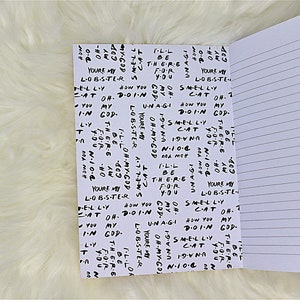 I'LL
BE
THERE
FOR
YOU
OH.
MY.
GOD.
SMELLY
CAT
YOU'RE MY
LOBSTER
SMELLY
CAT
HOW YOU
DOIN
UNAGI
SMELLY
CAT
HOW YOU
DOIN
OH.
MY.
GOD.
I'LL
BE
THERE
FOR
YOU
UNAGI
HOW YOU
DOIN
I'LL
BE
THERE
FOR
YOU
YOU'RE MY
LOBSTER
SMELLY
CAT
HOW YOU
DOIN
UNAGI
OH.
MY.
GOD.
YOU'RE MY
LOBSTER
SMELLY
CAT
UNAGI